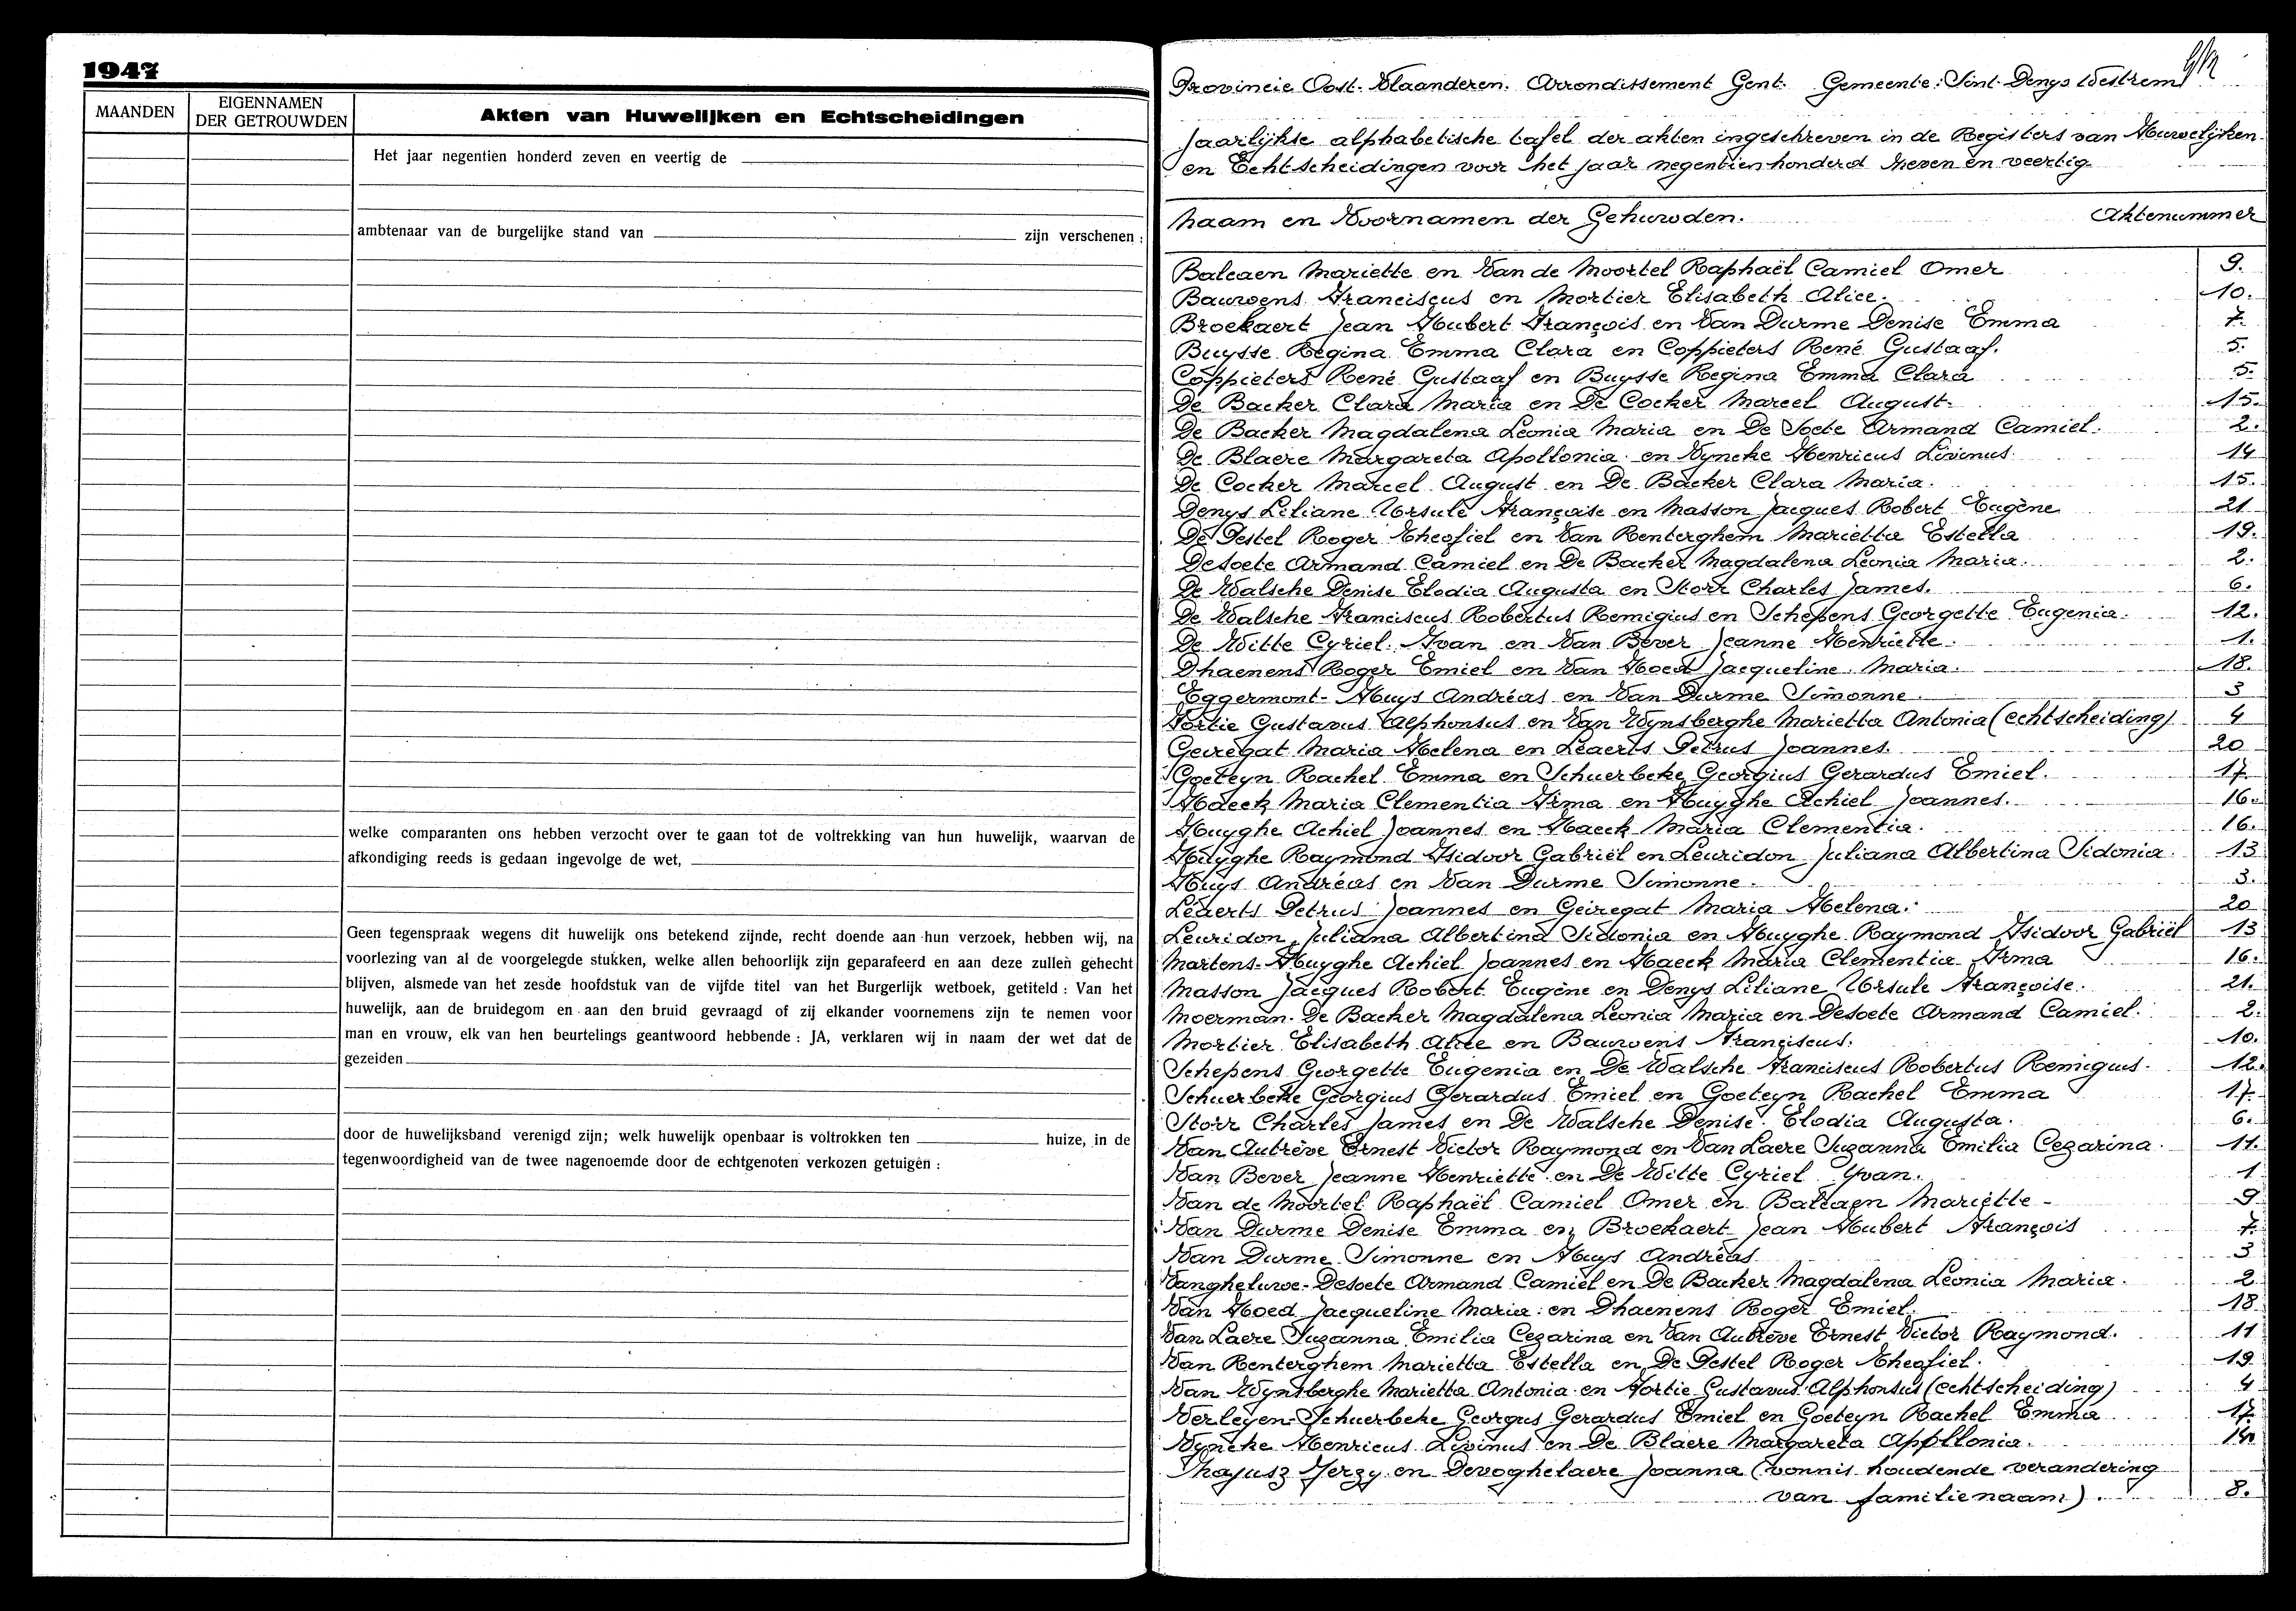 1947
MAANDEN
EIGENNAMEN
DER GETROUWDEN
Akten van Huwelijken en Echtscheidingen
Het jaar negentien honderd zeven en veertig de
ambtenaar van de burgelijke stand van zijn verschenen :
welke comparanten ons hebben verzocht over te gaan tot de voltrekking van hun huwelijk, waarvan de
afkondiging reeds is gedaan ingevolge de wet,
Geen tegenspraak wegens dit huwelijk ons betekend zijnde, recht doende aan hun verzoek, hebben wij, na
voorlezing van al de voorgelegde stukken, welke allen behoorlijk zijn geparafeerd en aan deze zullen gehecht
blijven, alsmede van het zesde hoofdstuk van de vijfde titel van het Burgerlijk wetboek, getiteld : Van het
huwelijk, aan de bruidegom en aan den bruid gevraagd of zij elkander voornemens zijn te nemen voor
man en vrouw, elk van hen beurtelings geantwoord hebbende : JA, verklaren wij in naam der wet dat de
gezeiden
door de huwelijksband verenigd zijn; welk huwelijk openbaar is voltrokken ten huize, in de
tegenwoordigheid van de twee nagenoemde door de echtgenoten verkozen getuigen :
Provincie Oost-Vlaanderen. Arrondissement Gent. Gemeente: Sint-Denys Westrem
Jaarlijkse alphabetische tafel der akten ingeschreven in de Registers van Huwelijken
en Echtscheidingen voor het jaar negentienhonderd zeven en veertig
Naam en Voornamen der Gehuwden. Aktenummer
Balcaen Mariette en Van de Moortel Raphaël Camiel Omer 9.
Bauwens Franciscus en Mortier Elisabeth Alice. 10.
Broekaert Jean Hubert François en Van Durme Denise Emma 7.
Buysse Regina Emma Clara en Coppieters René Gustaaf. 5.
Coppieters René Gustaaf en Buysse Regina Emma Clara 5.
De Backer Clara Maria en De Cocker Marcel August. 15.
De Backer Magdalena Leonia Maria en De Soete Armand Camiel. 2.
De Blaere Margareta Apollonia en Vyncke Henricus Livinus 14
De Cocker Marcel August en De Backer Clara Maria. 15.
Denys Liliane Ursule Françoise en Masson Jacques Robert Eugène 21
De Pestel Roger Theofiel en Van Renterghem Marietta Estella 19.
Desoete Armand Camiel en De Backer Magdalena Leonia Maria. 2.
De Walsche Denise Elodia Augusta en Storr Charles James. 6.
De Walsche Franciscus Robertus Remigius en Schepens Georgette Eugenia. 12.
De Witte Cyriel Ivan en Van Bever Jeanne Henriette. 1.
Dhaenens Roger Emiel en Van Hoed Jacqueline Maria. 18.
Eggermont-Huys Andréas en Van Durme Simonne. 3
Fortie Gustavus Alphonsus en Van Wynsberghe Marietta Antonia (echtscheiding) 4
Geiregat Maria Helena en Leaerts Petrus Joannes 20
Goeteyn Rachel Emma en Schuerbeke Georgius Gerardus Emiel. 17
Haeck Maria Clementia Irma en Huyghe Achiel Joannes. 16.
Huyghe Achiel Joannes en Haeck Maria Clementia. 16.
Huyghe Raymond Isidoor Gabriël en Leuridon Juliana Albertina Sidonia. 13
Huys Andréas en Van Durme Simonne. 3.
Leaerts Petrus Joannes en Geiregat Maria Helena. 20
Leuridon Juliana Albertina Sidonia en Huyghe Raymond Isidoor Gabriël 13
Martens-Huyghe Achiel Joannes en Haeck Maria Clementia Irma 16.
Masson Jacques Robert Eugène en Denys Liliane Ursule Françoise. 21.
Moerman-De Backer Magdalena Leonia Maria en Desoete Armand Camiel. 2.
Mortier Elisabeth Alice en Bauwens Franciscus. 10.
Schepens Georgette Eugenia en De Walsche Franciscus Robertus Remigius. 12.
Schuerbeke Georgius Gerardus Emiel en Goeteyn Rachel Emma 17.
Storr Charles James en De Walsche Denise Elodia Augusta. 6.
Van Autrève Ernest Victor Raymond en Van Laere Suzanna Emilia Cezarina. 11.
Van Bever Jeanne Henriette en De Witte Cyriel Yvan. 1
Van de Moortel Raphaël Camiel Omer en Balcaen Mariette - 9
Van Durme Denise Emma en Broekaert Jean Hubert François 7.
Van Durme Simonne en Huys Andréas 3
Vangheluwe-Desoete Armand Camiel en De Backer Magdalena Leonia Maria. 2
Van Hoed Jacqueline Maria en Dhaenens Roger Emiel. 18
Van Laere Suzanna Emilia Cezarina en Van Autrève Ernest Victor Raymond. 11
Van Renterghem Marietta Estella en De Pestel Roger Theofiel. 19
Van Wynsberghe Marietta Antonia en Fortie Gustavus Alphonsus (echtscheiding) 4
Verleyen-Schuerbeke Georgus Gerardus Emiel en Goeteyn Rachel Emma 17
Vyncke Henricus Livinus en De Blaere Margareta Appllonia. 14
Jerzy en Devoghelaere Joanna (vonnis houdende verandering
van familienaam). 8.